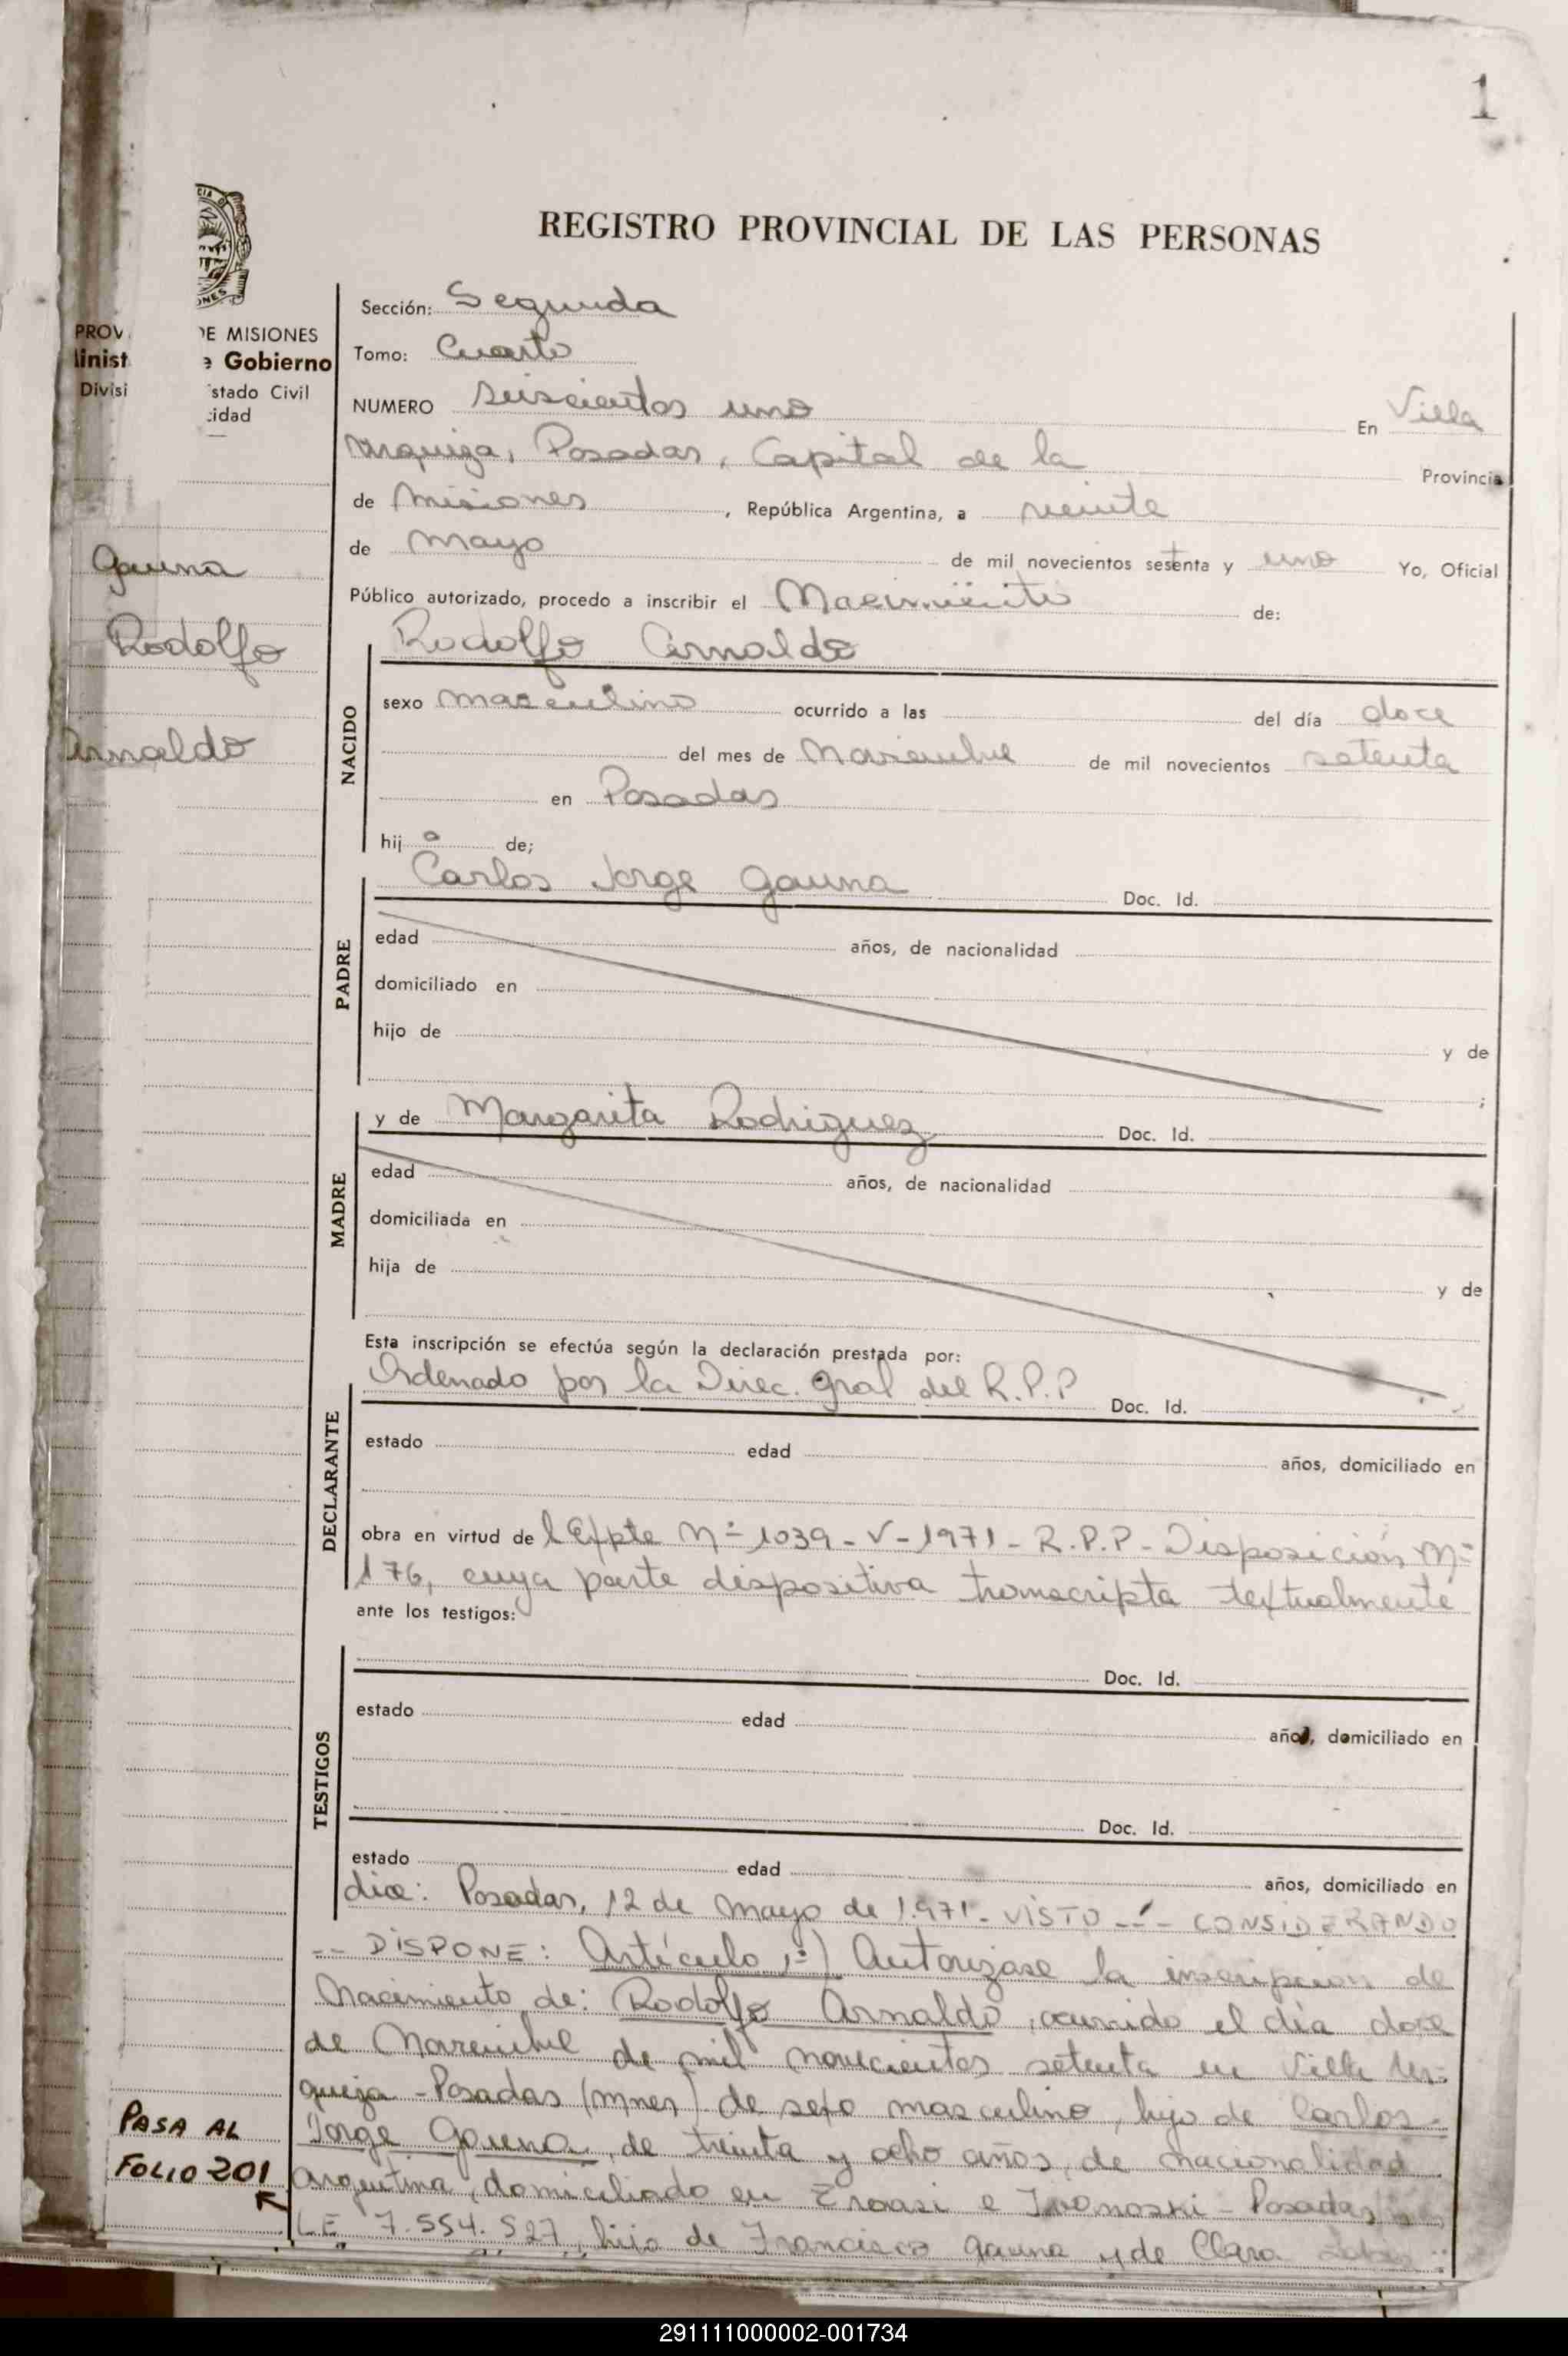 1
REGISTRO PROVINCIAL DE LAS PERSONAS
PROV. DE MISIONES
Gobierno
Divisi stado Civil
cidad
Gauna
Rodolfo
Arnaldo
Sección: Segunda
Tomo: Cuarto
NUMERO Seiscientos uno En Villa
Urquiza, Posadas, Capital de la Provincia
de Misiones, República Argentina, a veinte
de Mayo de mil novecientos setenta y uno Yo, Oficial
Público autorizado, procedo a inscribir el Nacimiento de:
NACIDO
Rodolfo Arnaldo
sexo masculino ocurrido a las del día doce
del mes de Noviembre de mil novecientos setenta
en Posadas
hij o de;
PADRE
Carlos Jorge Gauna Doc. Id.
edad años, de nacionalidad
domiciliado en
hijo de y de
;
MADRE
y de Margarita Rodriguez Doc. Id.
edad años, de nacionalidad
domiciliada en
hija de y de
Esta inscripción se efectúa según la declaración prestada por:
DECLARANTE
Ordenado por la Direc. Gral del R.P.P Doc. Id.
estado edad años, domiciliado en
obra en virtud de l Expte Nº 1039-V-1971- R.P.P- Disposición Nº
176, cuya parte dispositiva transcripta textualmente
ante los testigos:
TESTIGOS
Doc. Id.
estado edad años, domiciliado en
Doc. Id.
estado edad años, domiciliado en
dice: Posadas, 12 de Mayo de 1.971- VISTO --- CONSIDERANDO
-- DISPONE: Artículo 1º) Autorizase la inscripcion de
Nacimiento de: Rodolfo Arnaldo, ocurrido el día doce
de Noviembre de mil novecientos setenta en Villa Ur-
quiza - Posadas (Mnes) de sexo masculino, hijo de Carlos
Jorge Gauna, de treinta y ocho años, de nacionalidad
argentina, domiciliado en e - Posadas
LE 7.554.527, hijo de Francisco Gauna y de Clara
PASA AL
FOLIO 201
291111000002-001734